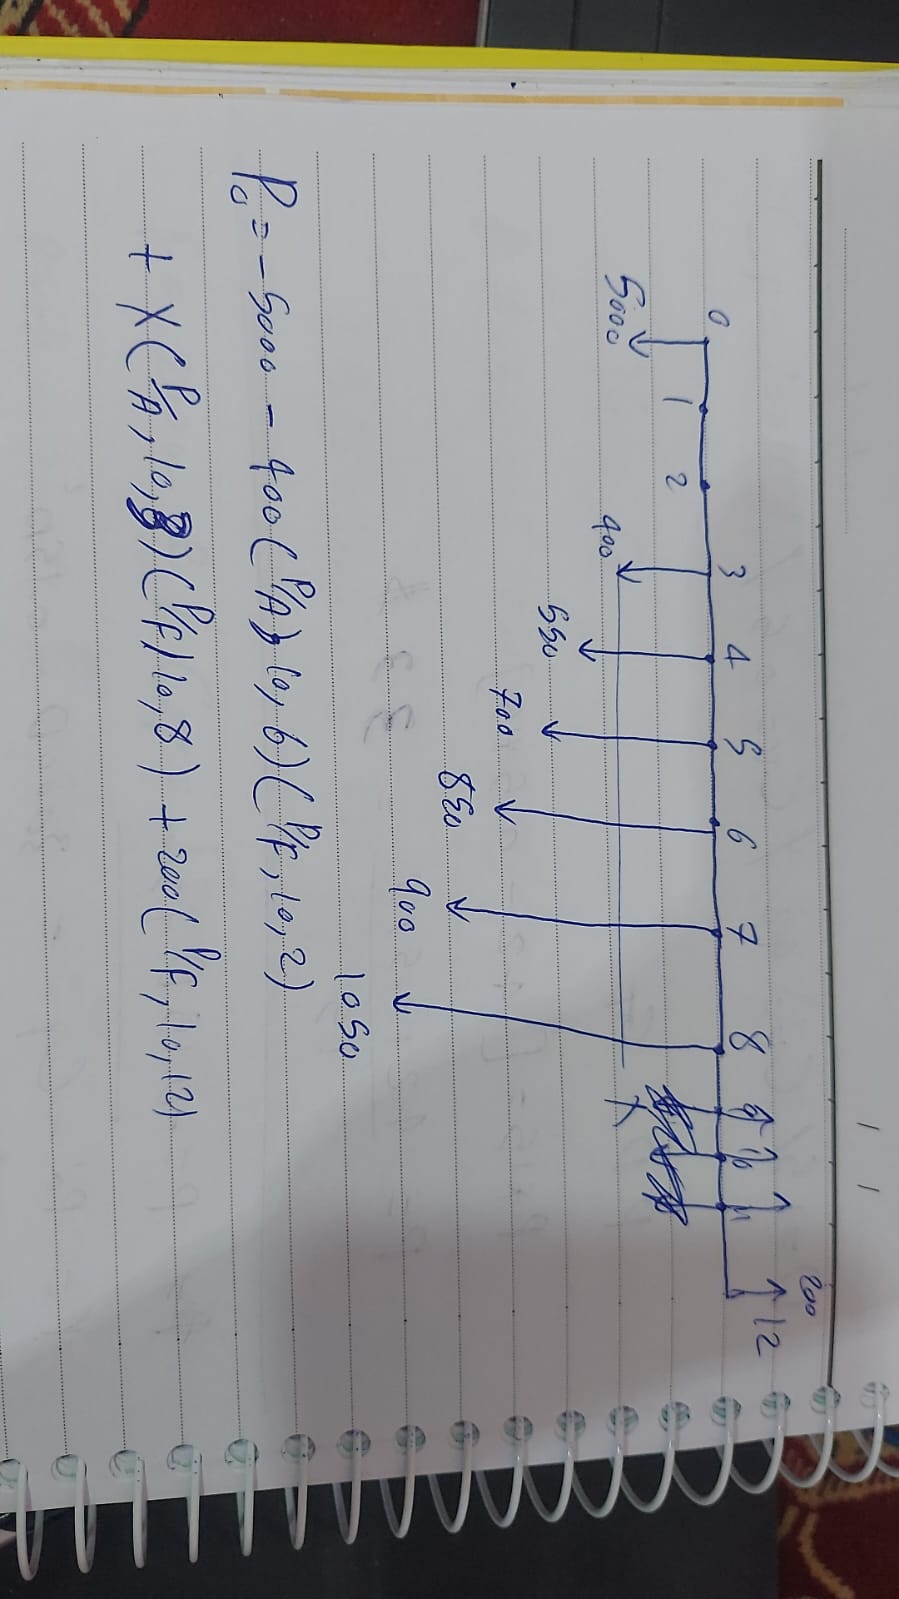 0 1 2 3 4 5 6 7 8 9 10 11 12
200
5000
400
550
700
850
900
1050
P₀ = -5000 - 400(P/A, 10, 6)(P/F, 10, 2)
+ X(P/A, 10, )(P/F, 10, 8) + 200(P/F, 10, 12)